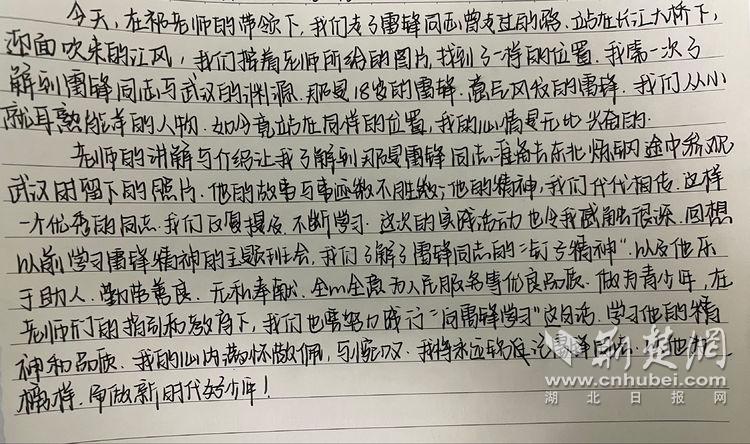 今天，在祁老师的带领下，我们走了雷锋同志曾走过的路。站在长江大桥下，
迎面吹来的江风，我们拿着老师所给的图片，找到了一样的位置。我第一次了
解到雷锋同志与武汉的渊源。那是18岁的雷锋，意气风发的雷锋。我们从小
就耳熟能详的人物。如今竟站在同样的位置，我的心情是无比兴奋的。
老师的讲解与介绍让我了解到那是雷锋同志准备去东北炼钢途中参观
武汉时留下的照片。他的故事与事迹数不胜数；他的精神，我们代代相传。这样
一个优秀的同志，我们反复提及，不断学习。这次的实践活动也令我感触很深。回想
以前学习雷锋精神的主题班会，我们了解了雷锋同志的“钉子精神”，以及他乐
于助人、勤劳善良、无私奉献、全心全意为人民服务等优良品质。做为青少年，在
老师们的指引和教育下，我们也要努力践行“向雷锋学习”这句话。学习他的精
神和品质。我的心内满怀敬佩，与。我将永远铭记雷锋同志，
榜样，争做新时代好少年！
荆楚网
www.cnhubei.com
湖北日报网